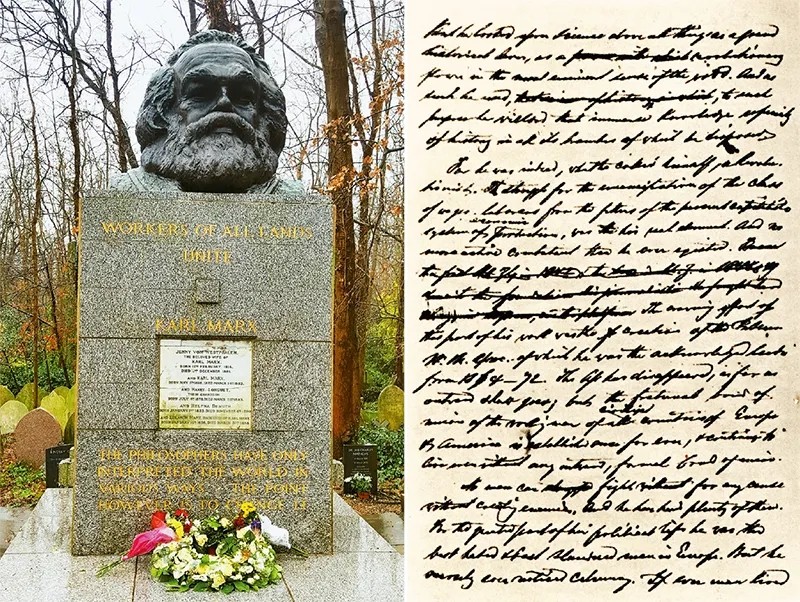 WORKERS OF ALL LANDS
UNITE
KARL MARX
JENNY VON WESTPHALEN,
THE BELOVED WIFE OF
KARL MARX,
BORN 12TH FEBRUARY 1814,
DIED 2ND DECEMBER 1881.
AND KARL MARX,
BORN MAY 5TH 1818, DIED MARCH 14TH 1883.
AND HARRY LONGUET,
THEIR GRANDSON,
BORN JULY 4TH 1878, DIED MARCH 20TH 1883.
AND HELENA DEMUTH,
THE PHILOSOPHERS HAVE ONLY
INTERPRETED THE WORLD IN
VARIOUS WAYS · THE POINT
HOWEVER IS TO CHANGE IT
he looked upon science above all things as a grand
historical lever, as a revolutionary
force in the most eminent sense of the word. And as
such he used, to such
purpose he wielded that immense knowledge, especially
of history in all its branches of which he disposed.
For he was indeed, what he called himself, a Revolu-
tionist. The struggle for the emancipation of the class
of wages labourers from the fetters of the present capitalist
system of economic production, was his real element. And no
more active combatant than he ever existed.
the crowning effort of
this part of his work was the creation of the
of which he was the acknowledged leader
from 1864-72. The has disappeared, as far as
outward show goes; but the fraternal bond of
union of the of all countries of Europe
& America is established once for ever, & continues to
live even without any outward, formal bond of union.
No man can fight for any cause
without creating enemies. And he has had plenty of them.
For the greater part of his political life he was the
best hated & best slandered man in Europe. But he
scarcely ever noticed calumny. If ever man lived